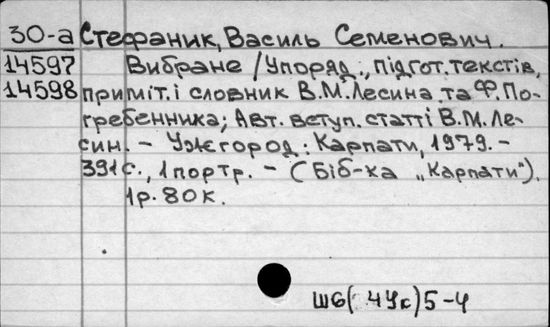 30-а Стефаник, Василь Семенович.
14597 Вибране / Упоряд., підгот. текстів,
14598 приміт. і словник В.М.Лесина та Ф.По-
гребенника; Авт. вступ. статті В.М.Ле-
син. – Ужгород: Карпати, 1979. –
391с., 1 портр. – (Біб-ка „Карпати").
1р. 80к.
Ш6(4Ук)5-4